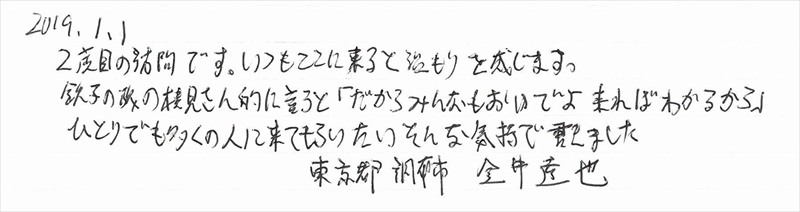 2019.1.1
2度目の訪問です。いつもここに来ると温もりを感じます。
鉄子の旅の横見さん的に言ると「だからみんなもおいでよ 来ればわかるから」
ひとりでも多くの人に来てもらいたいそんな気持で観ました
東京都 調布市 金井 達也